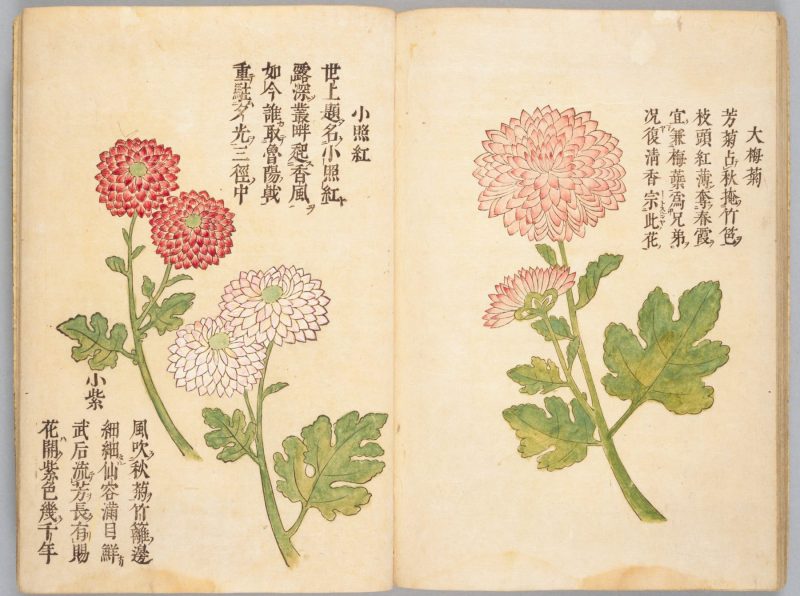 大梅菊
芳菊占秋掩竹笆
枝頭紅薄奪春霞
宜兼梅蘂爲兄弟
况復清香宗此花
小照紅
世上題名小照紅
露深叢畔起香風
如今誰取魯陽戟
重駐夕光三徑中
小紫
風吹秋菊竹籬邊
細細仙容滿目鮮
武后流芳長有賜
花開紫色幾千年